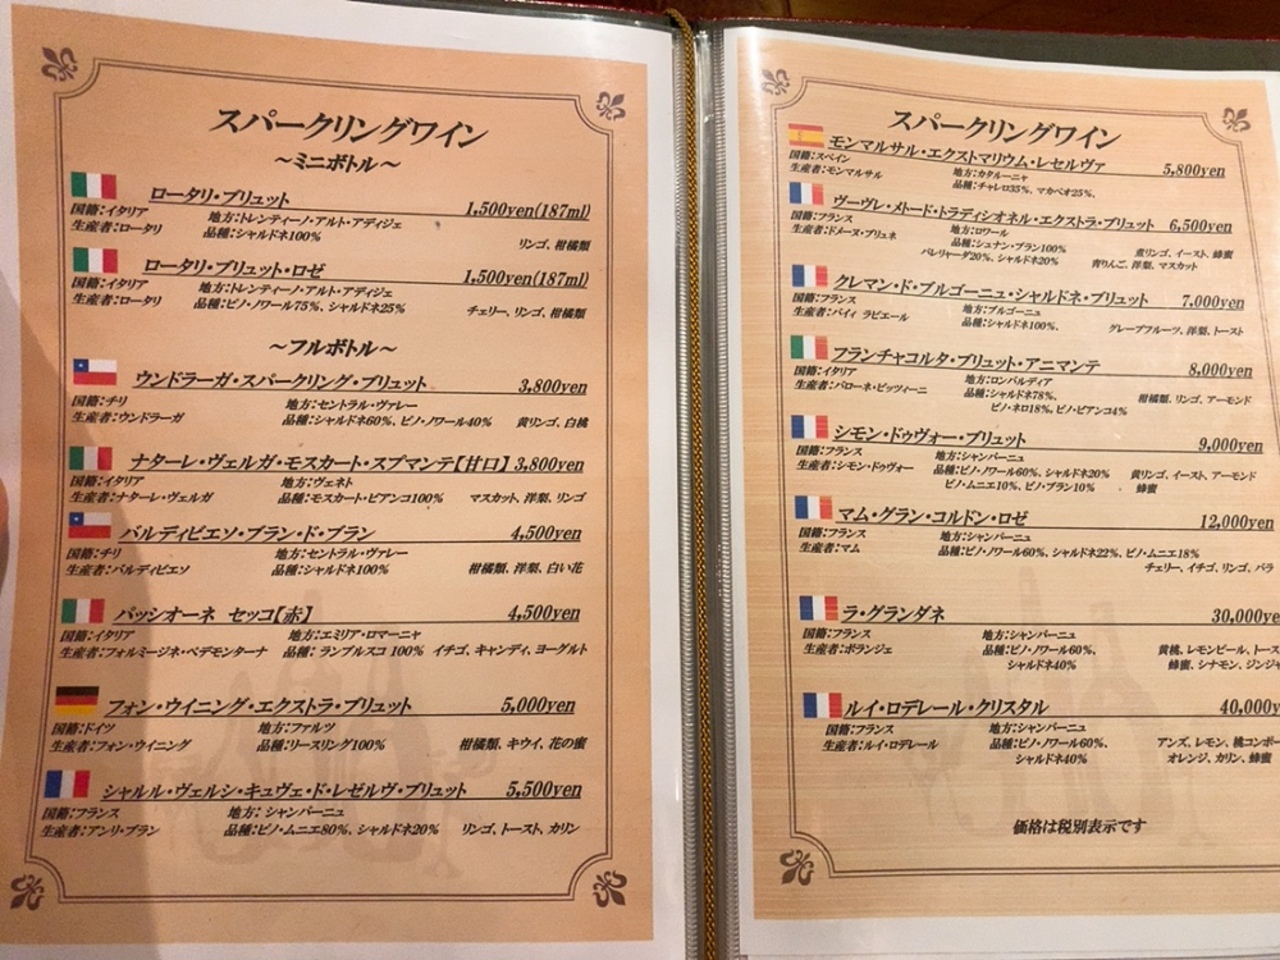 スパークリングワイン
～ミニボトル～
ロータリ・ブリュット 1,500yen(187ml)
国籍：イタリア 地方：トレンティーノ・アルト・アディジェ
生産者：ロータリ 品種：シャルドネ100% リンゴ、柑橘類
ロータリ・ブリュット・ロゼ 1,500yen(187ml)
国籍：イタリア 地方：トレンティーノ・アルト・アディジェ
生産者：ロータリ 品種：ピノ・ノワール75%、シャルドネ25% チェリー、リンゴ、柑橘類
～フルボトル～
ウンドラーガ・スパークリング・ブリュット 3,800yen
国籍：チリ 地方：セントラル・ヴァレー
生産者：ウンドラーガ 品種：シャルドネ60%、ピノ・ノワール40% 黄リンゴ、白桃
ナターレ・ヴェルガ・モスカート・スプマンテ【甘口】 3,800yen
国籍：イタリア 地方：ヴェネト
生産者：ナターレ・ヴェルガ 品種：モスカート・ビアンコ100% マスカット、洋梨、リンゴ
バルディビエソ・ブラン・ド・ブラン 4,500yen
国籍：チリ 地方：セントラル・ヴァレー
生産者：バルディビエソ 品種：シャルドネ100% 柑橘類、洋梨、白い花
パッシオーネ セッコ【赤】 4,500yen
国籍：イタリア 地方：エミリア・ロマーニャ
生産者：フォルミージネ・ペデモンターナ 品種：ランブルスコ 100% イチゴ、キャンディ、ヨーグルト
フォン・ウイニング・エクストラ・ブリュット 5,000yen
国籍：ドイツ 地方：ファルツ
生産者：フォン・ウイニング 品種：リースリング100% 柑橘類、キウイ、花の蜜
シャルル・ヴェルシ・キュヴェ・ド・レゼルヴ・ブリュット 5,500yen
国籍：フランス 地方：シャンパーニュ
生産者：アンリ・ブラン 品種：ピノ・ムニエ80%、シャルドネ20% リンゴ、トースト、カリン
スパークリングワイン
モンマルサル・エクストマリウム・レセルヴァ 5,800yen
国籍：スペイン 地方：カタルーニャ
生産者：モンマルサル 品種：チャレロ35%、マカベオ25%、
ヴーヴレ・メトード・トラディシオネル・エクストラ・ブリュット 6,500yen
国籍：フランス 地方：ロワール
生産者：ドメーヌ・ブリュネ 品種：シュナン・ブラン100% 煮リンゴ、イースト、蜂蜜
パレリャーダ20%、シャルドネ20% 青りんご、洋梨、マスカット
クレマン・ド・ブルゴーニュ・シャルドネ・ブリュット 7,000yen
国籍：フランス 地方：ブルゴーニュ
生産者：バイィ ラピエール 品種：シャルドネ100%、 グレープフルーツ、洋梨、トースト
フランチャコルタ・ブリュット・アニマンテ 8,000yen
国籍：イタリア 地方：ロンバルディア
生産者：バローネ・ピッツィーニ 品種：シャルドネ78%、 柑橘類、リンゴ、アーモンド
ピノ・ネロ18%、ピノ・ビアンコ4%
シモン・ドゥヴォー・ブリュット 9,000yen
国籍：フランス 地方：シャンパーニュ
生産者：シモン・ドゥヴォー 品種：ピノ・ノワール60%、シャルドネ20% 黄リンゴ、イースト、アーモンド
ピノ・ムニエ10%、ピノ・ブラン10% 蜂蜜
マム・グラン・コルドン・ロゼ 12,000yen
国籍：フランス 地方：シャンパーニュ
生産者：マム 品種：ピノ・ノワール60%、シャルドネ22%、ピノ・ムニエ18%
チェリー、イチゴ、リンゴ、バラ
ラ・グランダネ 30,000ye
国籍：フランス 地方：シャンパーニュ
生産者：ボランジェ 品種：ピノ・ノワール60%、 黄桃、レモンピール、トース
シャルドネ40% 蜂蜜、シナモン、ジンジャ
ルイ・ロデレール・クリスタル 40,000y
国籍：フランス 地方：シャンパーニュ
生産者：ルイ・ロデレール 品種：ピノ・ノワール60%、 アンズ、レモン、桃コンポー
シャルドネ40% オレンジ、カリン、蜂蜜
価格は税別表示です